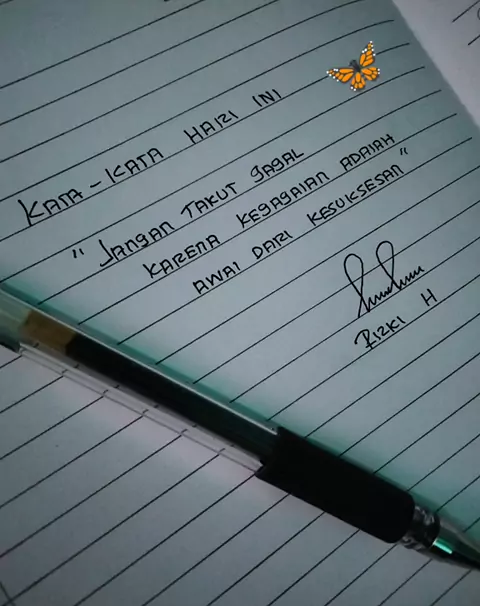 KATA-KATA HARI INI
"JANGAN TAKUT GAGAL
KARENA KEGAGALAN ADALAH
AWAL DARI KESUKSESAN"
RIZKI H